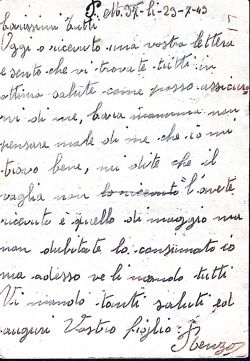 P. M. 37. li-23-7-43
Carissimi Tutti
Oggi o ricevuto una vostra lettera
e sento che vi trovate tutti in
ottima salute come posso assicurar
vi di me, Cara mamma non
pensare male di me che io mi
trovo bene, mi dite che il
vaglia non lo ricevuto l'avete
ricevuto è quello di maggio ma
non dubitate lo consumato io
ma adesso ve li mando tutti
Vi mando tanti saluti ed
auguri Vostro figlio
Renzo